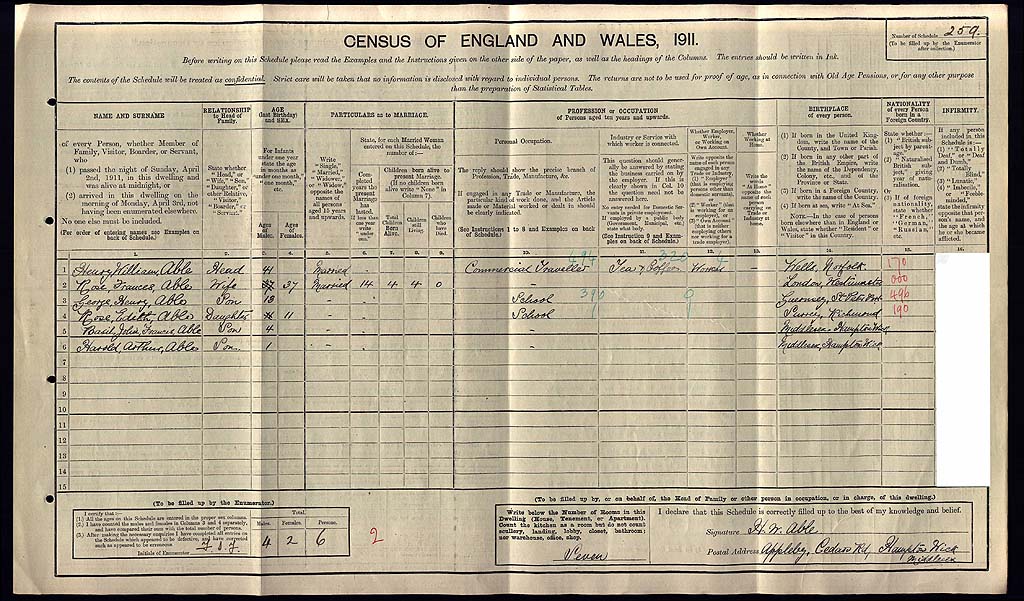 Number of Schedule 259.
(To be filled up by the Enumerator after collection.)
CENSUS OF ENGLAND AND WALES, 1911.
Before writing on this Schedule please read the Examples and the Instructions given on the other side of the paper, as well as the headings of the Columns. The entries should be written in Ink.
The contents of the Schedule will be treated as confidential. Strict care will be taken that no information is disclosed with regard to individual persons. The returns are not to be used for proof of age, as in connection with Old Age Pensions, or for any other purpose
than the preparation of Statistical Tables.
NAME AND SURNAME
of every Person, whether Member of
Family, Visitor, Boarder, or Servant,
who
(1) passed the night of Sunday, April
2nd, 1911, in this dwelling and
was alive at midnight, or
(2) arrived in this dwelling on the
morning of Monday, April 3rd, not
having been enumerated elsewhere.
No one else must be included.
(For order of entering names see Examples on
back of Schedule.)
RELATIONSHIP
to Head of
Family.
State whether
"Head," or
"Wife," "Son,"
"Daughter," or
other Relative,
"Visitor,"
"Boarder," or
"Servant."
AGE
(last Birthday)
and SEX.
For Infants
under one year
state the age
in months as
"under one month,"
"one month,"
etc.
Ages of Males.
Ages of Females.
PARTICULARS as to MARRIAGE.
Write
"Single,"
"Married,"
"Widower,"
or "Widow,"
opposite the
names of all
persons
aged 15 years
and upwards.
State, for each Married Woman
entered on this Schedule, the
number of:—
Completed years the present Marriage has lasted. If less than one year write "under one."
Children born alive to
present Marriage.
(If no children
born alive write "None" in
Column 7).
Total Children Born Alive.
Children still Living.
Children who have Died.
PROFESSION or OCCUPATION
of Persons aged ten years and upwards.
Personal Occupation.
The reply should show the precise branch of
Profession, Trade, Manufacture, &c.
If engaged in any Trade or Manufacture, the
particular kind of work done, and the Article
made or Material worked or dealt in should
be clearly indicated.
(See Instructions 1 to 8 and Examples on back
of Schedule.)
Industry or Service with
which worker is connected.
This question should generally be answered by stating
the business carried on by
the employer. If this is
clearly shown in Col. 10
the question need not be
answered here.
No entry needed for Domestic Servants in private employment.
If employed by a public body
(Government, Municipal, etc.)
state what body.
(See Instruction 9 and Examples on back of Schedule.)
Whether Employer,
Worker, or
Working on
Own Account.
Whether
Working at
Home.
BIRTHPLACE
of every person.
(1) If born in the United Kingdom, write the name of the
County, and Town or Parish.
(2) If born in any other part of
the British Empire, write
the name of the Dependency,
Colony, etc., and of the
Province or State.
(3) If born in a Foreign Country,
write the name of the Country.
(4) If born at sea, write "At Sea."
NOTE.—In the case of persons
born elsewhere than in England or
Wales, state whether "Resident" or
"Visitor" in this Country.
NATIONALITY
of every Person
born in a
Foreign Country.
INFIRMITY.
1 Henry William, Able Head 44 Married Commercial Traveller Tea & Coffee Worker — Wells, Norfolk 170
2 Rose, Frances, Able Wife 37 Married 14 4 4 0 — London, Westminster 000
3 George, Henry, Able Son 13 School Guernsey, St Peter Port 496
4 Rose, Edith, Able Daughter 11 School Surrey, Richmond 190
5 Basil, John, Francis, Able Son 4 Middlesex, Hampton Wick
6 Harold, Arthur, Able Son 1 Middlesex, Hampton Wick
7
8
9
10
11
12
13
14
15
(To be filled up by the Enumerator.)
I certify that:—
(1.) All the ages on this Schedule are entered in the proper sex columns.
(2.) I have counted the males and females in Columns 3 and 4 separately,
and have compared their sum with the total number of persons.
(3.) After making the necessary enquiries I have completed all entries on
the Schedule which appeared to be defective, and have corrected
such as appeared to be erroneous
Initials of Enumerator
Total.
Males. Females. Persons.
4 2 6
2
(To be filled up by, or on behalf of, the Head of Family or other person in occupation, or in charge, of this dwelling.)
Write below the Number of Rooms in this
Dwelling (House, Tenement, or Apartment).
Count the kitchen as a room but do not count
scullery, landing, lobby, closet, bathroom;
nor warehouse, office, shop.
Seven
I declare that this Schedule is correctly filled up to the best of my knowledge and belief.
Signature H. W. Able
Postal Address Appleby, Cedars Rd, Hampton Wick
Middlesex